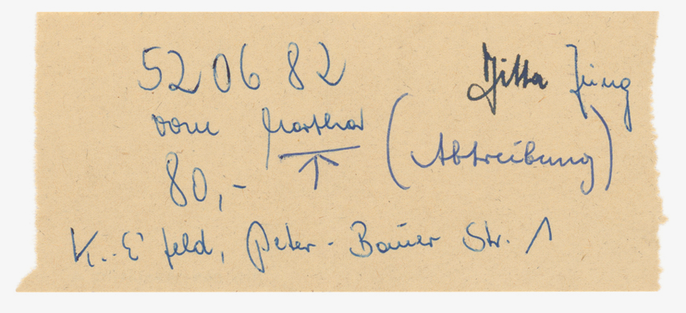 520682 Jitta Jung
vom Martha (Abtreibung)
80,-
K.. E'feld, Peter-Bauer Str. 1